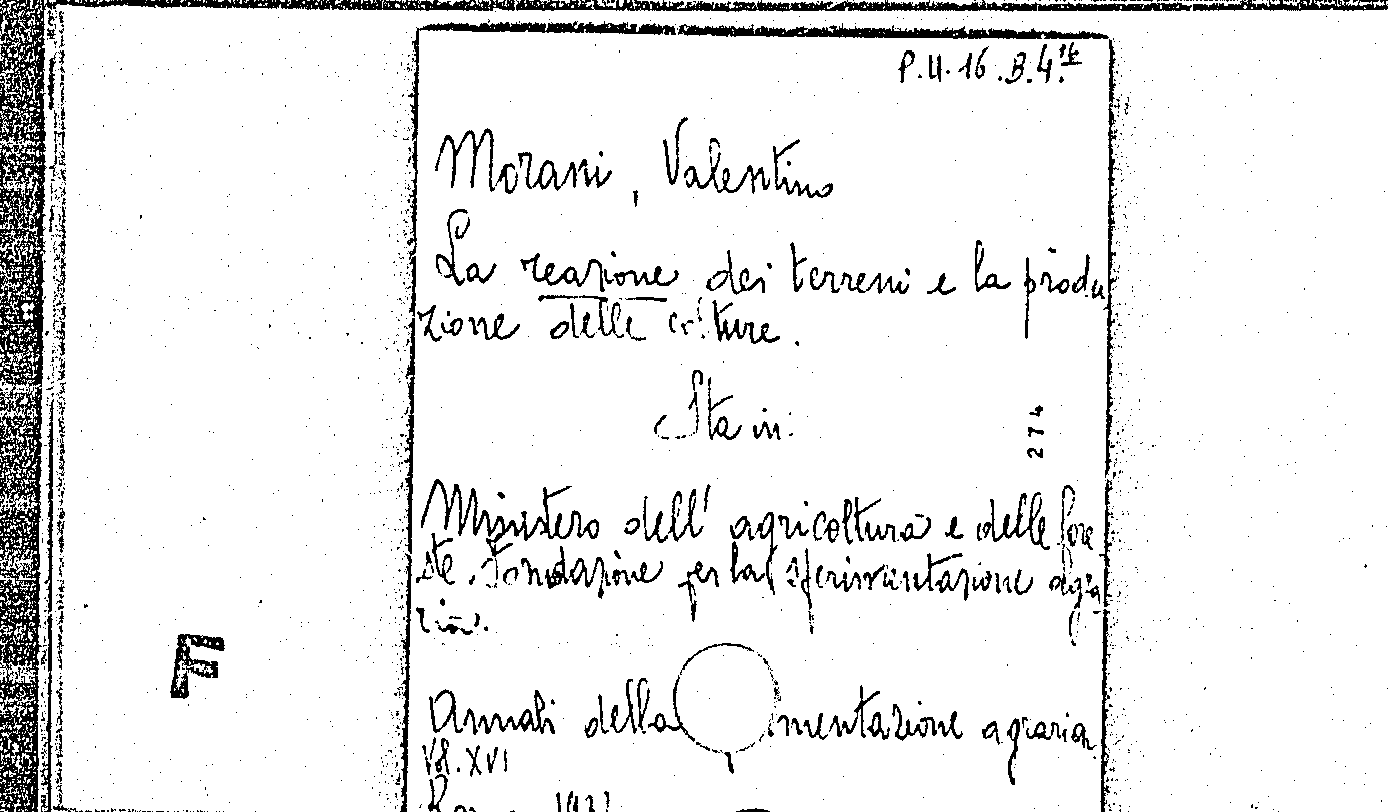 P.U.16.B.4.
Morani, Valentino
La reazione dei terreni e la produ
zione delle colture.
Sta in:
274
Ministero dell' agricoltura e delle fore
ste. Fondazione per la sperimentazione agra
ria.
F
Annali della mentazione agraria
Vol. XVI